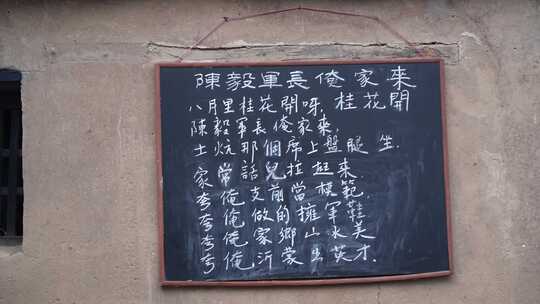 陳毅軍長俺家來
八月里桂花開呀，桂花開
陳毅軍長俺家來，
土炕那個席上盤腿坐．
家常話兒拉起來
夸俺支前當模範，
夸俺做的擁軍鞋
夸俺家鄉山水美
夸俺沂蒙出英才．